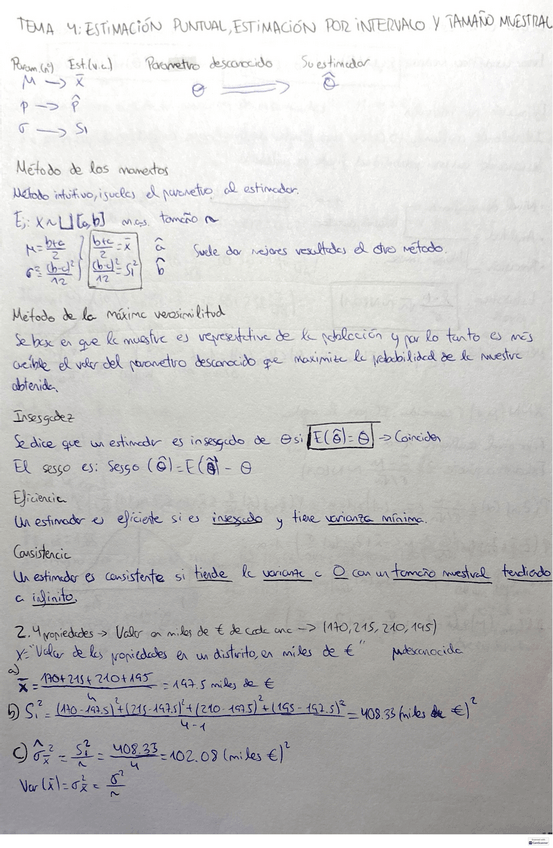 TEMA 4: ESTIMACIÓN PUNTUAL, ESTIMACIÓN POR INTERVALO Y TAMAÑO MUESTRAL
Param.(N) Est.(v.a.) Parametro desconocido Su estimador
μ → x̄ θ ⟹ θ̂
p → p̂
σ → S₁
Método de los momentos
Método intuitivo, igualas el parametro al estimador.
Ej: X~U[a,b] m.a.s. tamaño n
μ = b+a/2 } b+a/2 = x̄ â Suele dar mejores resultados el otro método.
σ² = (b-a)²/12 } (b-a)²/12 = S₁² b̂
Método de la máxima verosimilitud
Se basa en que la muestra es representativa de la población y por lo tanto es más
creible el valor del parametro desconocido que maximiza la probabilidad de la muestra
obtenida.
Insesgadez
Se dice que un estimador es insesgado de θ si E(θ̂) = θ → Coinciden
El sesgo es: Sesgo (θ̂) = E(θ̂) - θ
Eficiencia
Un estimador es eficiente si es insesgado y tiene varianza mínima.
Consistencia
Un estimador es consistente si tiende la varianza a 0 con un tamaño muestral tendiendo
a infinito.
2. 4 propiedades → Valor en miles de € de cada una → (170, 215, 210, 195)
X="Valor de las propiedades en un distrito, en miles de €" μ desconocida
a) x̄ = 170+215+210+195/4 = 197.5 miles de €
b) S₁² = (170-197.5)²+(215-197.5)²+(210-197.5)²+(195-197.5)²/4-1 = 408.33 (miles de €)²
c) σ̂²x̄ = S₁²/n = 408.33/4 = 102.08 (miles €)²
Var(x̄) = σ²x̄ = σ²/n